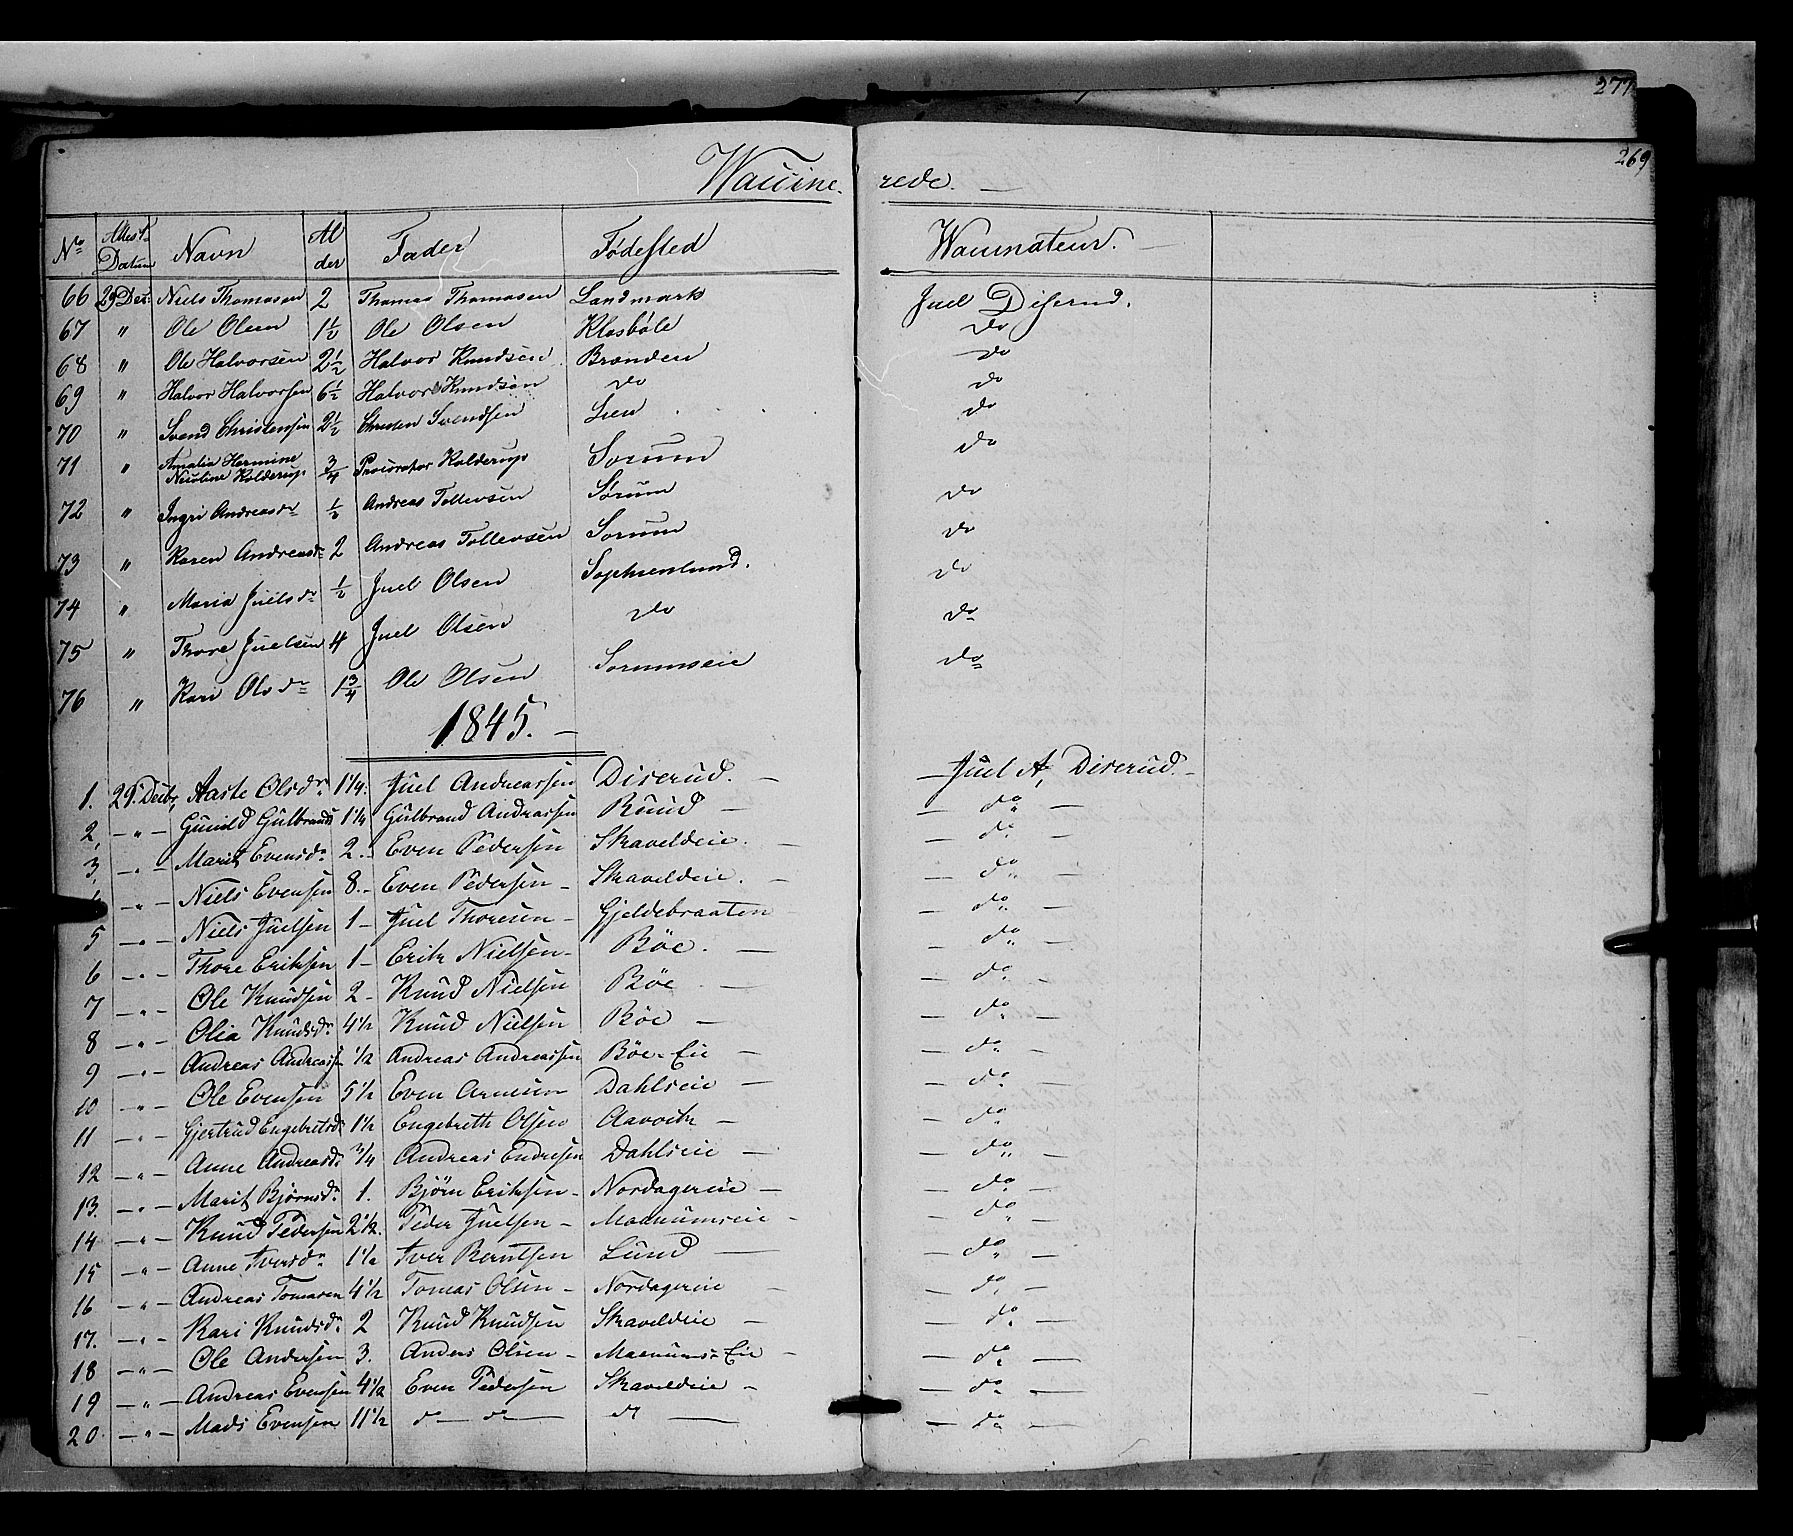 277
269
Waccine- rede. —
No Attest. Datum Navn Al der Fader Fødested Waccinateur. —
66 29 Dec: Niels Thomasen 2 Thomas Thomasen Landmark Juel Diserud.
67 " Ole Olsen 1½ Ole Olsen Klosbøle do
68 " Ole Halvorsen 2½ Halvor Knudsen Braaden do
69 " Halvor Halvorsen 6½ Halvor Knudsen do do
70 " Svend Christensen 2½ Christen Svendsen Lien do
71 " Amalia Hermine Nicoline Kolderup ¾ Procurator Kolderup Sorum do
72 " Ingri Andreasdr ½ Andreas Tollevsen Sørum do
73 " Karen Andreasdr 2 Andreas Tollevsen Sorum do
74 " Maria Juelsdr ½ Juel Olsen Sophienlund. do
75 " Thore Juelsen 4 Juel Olsen do do
76 " Kari Olsdr 1¾ Ole Olsen Sorumseie do
1845. —
1. 29. Decbr. Aaste Olsdr 1¼. Juel Andreassen Diserud. — — Juel A. Diserud. —
2, — " — Gunild Gulbrands 1¼ Gulbrand Andreassen Ruud — — do —
3, — " — Marit Evensdr 2. Even Pedersen Skaveldeie. — — do —
— " — Niels Evensen 8. – Even Pedersen – Skaveldeie. — — do —
5 — " — Niels Juelsen 1 – Juel Thoresen – Gjeldebraaten — — do —
6 — " — Thore Eriksen 1 – Erik Nielsen – Böe. — — do —
7 — " — Ole Knudsen 2 – Knud Nielsen Böe — — do —
8 — " — Olia Knudsdr 4½ Knud Nielsen Böe — — do —
9 — " — Andreas Andreassen ½ Andreas Andreassen Böe-Eie — — do —
10 — " — Ole Evensen 5½ Even Arnesen Dahlseie — — do —
11 — " — Gjertrud Engebretsdr 1½ Engebreth Olsen Aavoik — — do —
12 — " — Anne Andreasdr ¾ Andreas Endresen Dahlseie — — do —
13. — " — Marit Bjørnsdr 1. Bjørn Eriksen – Nordagereie — — do —
14 — " — Knud Pedersen 2½. Peder Juelsen – Moenumseie — — do —
15 — " — Anne Iversdr 1½ Iver Berntsen Lund — — do —
16 — " — Andreas Tomasen 4½ Tomas Olsen – Nordagereie — — do —
17. — " — Kari Knudsdr 2 Knud Knudsen Skaveldeie — — do —
18 — " — Ole Andersen 3. Anders Olsen – Moenums-Eie — — do —
19 — " — Andreas Evensen 4½ Even Pedersen Skaveldeie — — do —
20 — " — Mads Evensen 11½ do — do — do — — do —